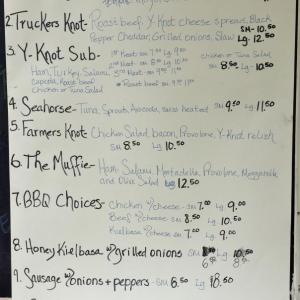 2. Truckers Knot- Roast beef, Y-Knot cheese spread, Black
Pepper Cheddar, Grilled onions, Slaw SM- 10.50
Lg. 12.50
3. Y-Knot Sub-
1st Meat - SM 7.00 Lg 9.00
2nd Meat - SM
3rd Meat - SM
Roast beef SM 9.00 11.00
Ham, Turkey, Salami,
Capicola, Roast beef
Chicken or Tuna Salad
Chicken or Tuna Salad
SM 8.50 Lg 10.50
4. Seahorse- Tuna, Sprouts, Avocado, swiss heated SM 9.50 Lg 11.50
5. Farmers Knot- Chicken Salad, bacon, Provolone, Y-Knot relish
SM 8.50 Lg 10.50
6. The Muffie- Ham, Salami, Mortadella, Provolone, Mozzarella
and Olive Salad Lg 12.50
7. BBQ Choices- Chicken w/cheese - SM 7.00 Lg 9.00
Beef w/cheese - SM 8.50 Lg 10.50
Kielbasa w/cheese SM 7.00 Lg 9.00
8. Honey Kielbasa w/grilled onions SM 6.50 Lg 8.50
9. Sausage w/onions + peppers - SM 6.50 Lg 8.50